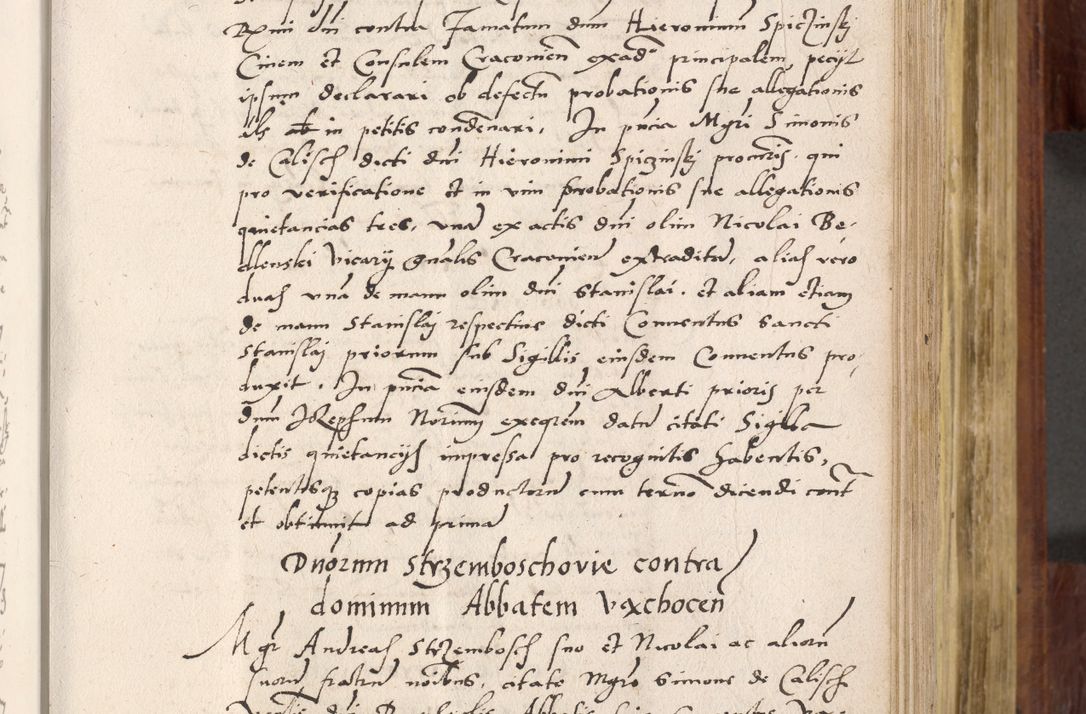 Rmi dni contra Famatum dnm Hieronimum Spiczinskj
Civem et Consulem Cracovien principalem, pecijt
ipsum declarari ob defectu probationis sue allegationis
als ab in petitis condemnari, In pncia Mgri Simonis
de Calisch dicti dni Hieronimi Spiczinskj procuris. qui
pro verificatione et in vim probationis sue allegationis
quietancias tres, una ex actis dni olim Nicolai Be-
dlenski Vicarij gnalis Cracovien extraditu, alias vero
duas una de manu olim dni Stanislai. et aliam etiam
de manu Stanislaj respective dicti Conventus Sancti
Stanislaj priorum sub Sigillis eiusdem Conventus pro,
duxit. In pncia eiusdem dni Alberti prioris per
dnm Josephum Norimum exeqrem datu citati Sigilla
dictis quietancijs impressa pro recognitis habentis,
petentisq copias productoru cum termo dicendi cont
et obtinuit ad prima
Duorum Strzemboschovie contra
dominum Abbatem Vaxchocen
Mgr Andreas Strzembosch suo et Nicolai ac alioru
suoru fratru noibus, citato Mgro Simone de Calisch